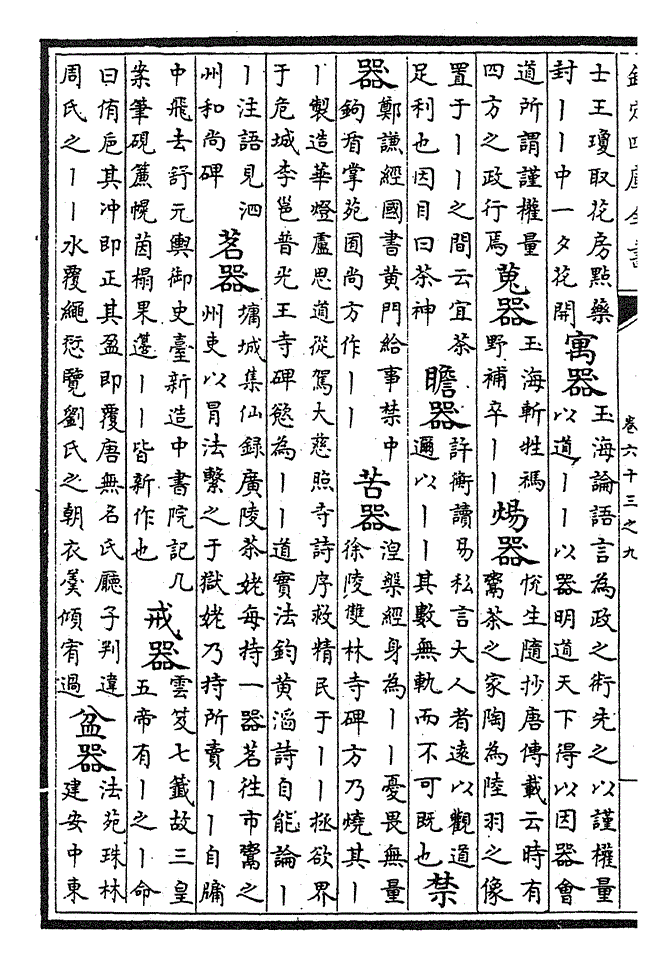 欽定四庫全書
卷六十三之九
士王瓊取花房點藥
封丨丨中一夕花開
寓器
玉海論語言為政之術先之以謹權量
以道丨丨以器明道天下得以因器會
道所謂謹權量
四方之政行焉
蒐器
玉海斬牲禡
野補卒丨丨
煬器
悅生隨抄唐傳載云時有
鬻茶之家陶為陸羽之像
置于丨丨之間云宜茶
足利也因目曰茶神
瞻器
許衡讀易私言大人者遠以觀道
邇以丨丨其數無軌而不可既也
禁
器
鄭謙經國書黄門給事禁中
鉤盾掌苑囿尚方作丨丨
苦器
涅槃經身為丨丨憂畏無量
徐陵雙林寺碑方乃燒其丨
丨製造華燈盧思道從駕大慈照寺詩序救精民于丨丨拯欲界
于危城李邕普光王寺碑慾為丨丨道實法鈞黄滔詩自能論丨
丨注語見泗
州和尚碑
茗器
墉城集仙録廣陵茶姥每持一器茗徃市鬻之
州吏以冒法繫之于獄姥乃持所賣丨丨自牖
中飛去舒元輿御史臺新造中書院記几
案筆硯簾幌茵榻果籩丨丨皆新作也
戒器
雲笈七籤故三皇
五帝有丨之丨命
曰侑巵其冲即正其盈即覆唐無名氏廳子判違
周氏之丨丨水覆繩愆覽劉氏之朝衣羹傾宥過
盆器
法苑珠林
建安中東